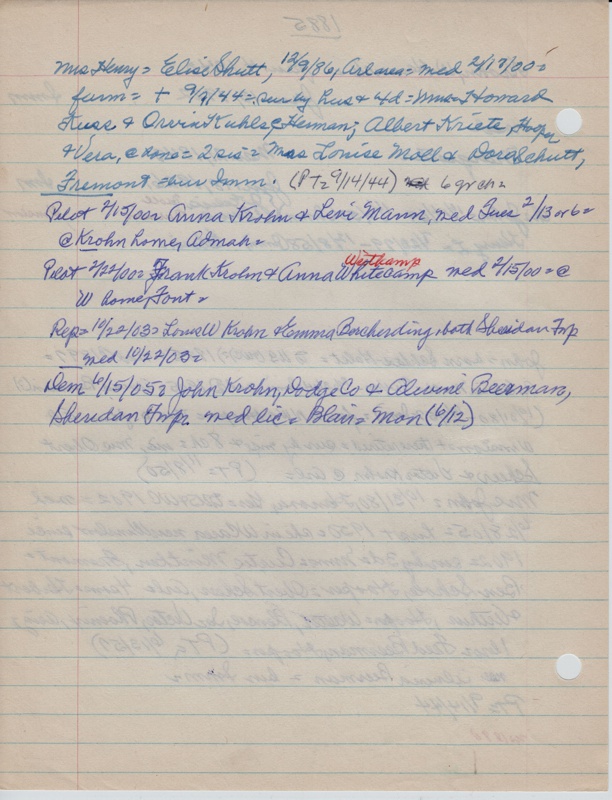 Mrs Henry = Elise Shutt, 12/9/86, Ar area = med 2/17/00 =
farm = + 9/9/44 = sur by hus & 4d = Mmes Howard
Kuss & Orvin Kuhls, & Heman; Albert Kriete, Hooper
& Vera, @ home = 2 sis = Mrs Louise Moll & Dora Schutt,
Fremont = bur Imm. (PT = 9/14/44) 6 gr ch =
Pilot 2/15/00 = Anna Krohn & Levi Mann, med Tues 2/13 or 6 =
@ Krohn home, Admah =
Westkamp
Pilot 2/22/00 = Frank Krohn & Anna Whitecamp med 2/15/00 = @
W home, Font =
Rep = 10/22/03 = Louis W Krohn & Emma Borcherding, both Sheridan Twp
med 10/22/03 =
Dem 6/15/05 = John Krohn, Dodge Co & Alvine Beerman,
Sheridan Twp. med lic = Blair = Mon (6/12)